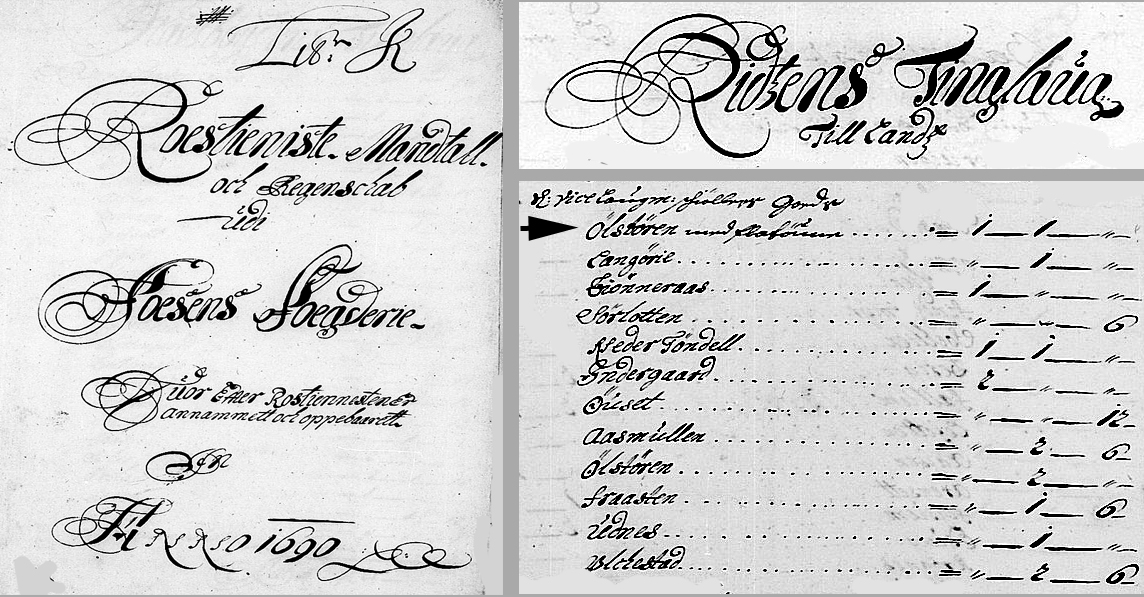 Lib: K
Roestieniste Mandtall
och Regenschab
udi
Foesens Foegderie
Huor Effter Rostiennistener
annammett och oppebaarett
In
Anno 1690
Ridsens Tinglaug
Till Landz
Vice Laugm: Gords
Ölstören med = 1 — 1 — "
Langörie = " — 1 — "
Giönneraas = 1 — " — "
Sörlotten = " — " — 6
Neder Töndell = 1 — 1 — "
Öndergaard = 2 — " — "
Öüset = " — " — 12
Aasmüllen = " — 2 — 6
Ölstören = " — 2 — "
Fraasten = " — 1 — 6
Üdnes = " — 1 — "
Ulchestad = " — 2 — 6